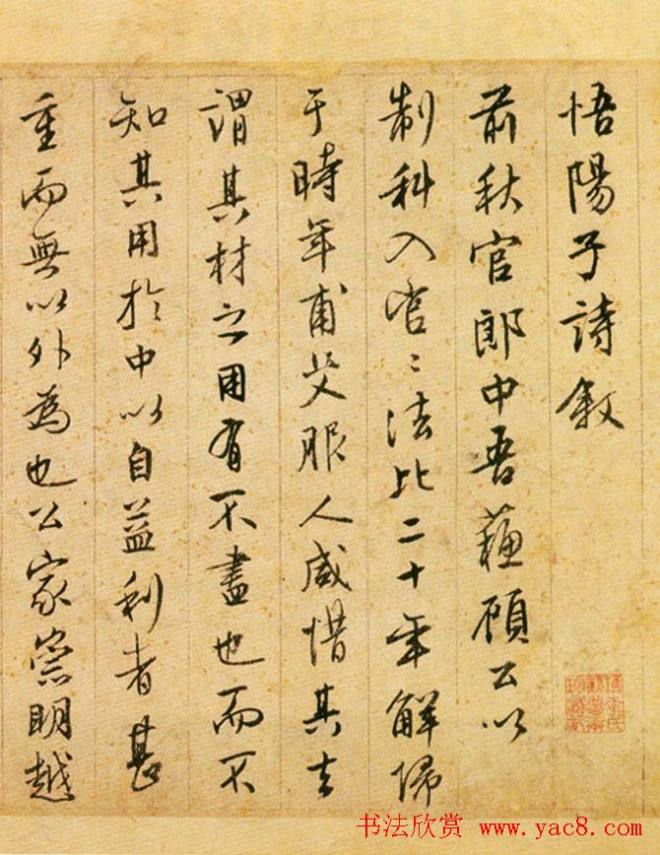 悟陽子詩敘
前秋官郎中吾蘓顧公以
制科入官〻法比二十年解歸
于時年甫艾服人咸惜其去
謂其材之用有不盡也而不
知其用於中以自益利者甚
重而無以外為也公家崇明越
书法欣赏 www.yac8.com